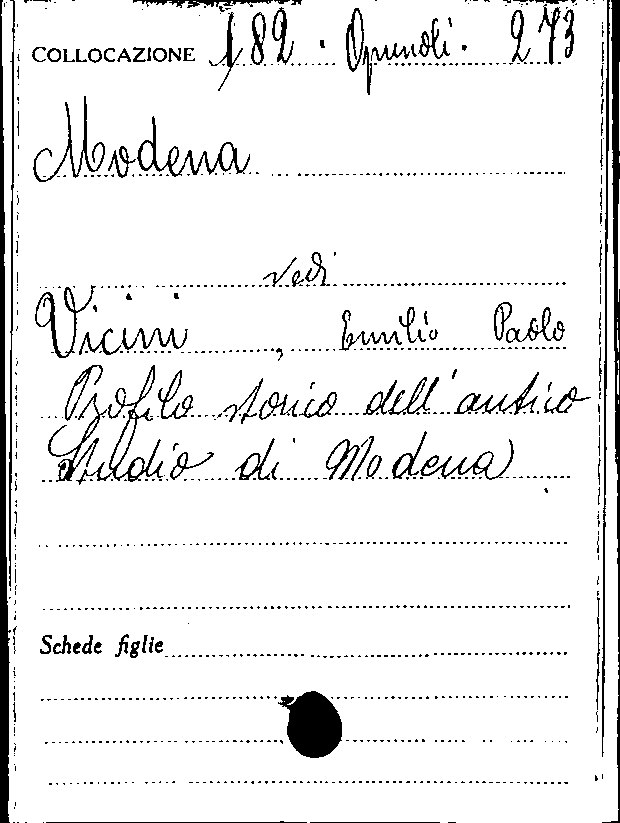 COLLOCAZIONE 182 . Opuscoli . 273
Modena
vedi
Vicini, Emilio Paolo
Profilo storico dell'antico
Studio di Modena
Schede figlie